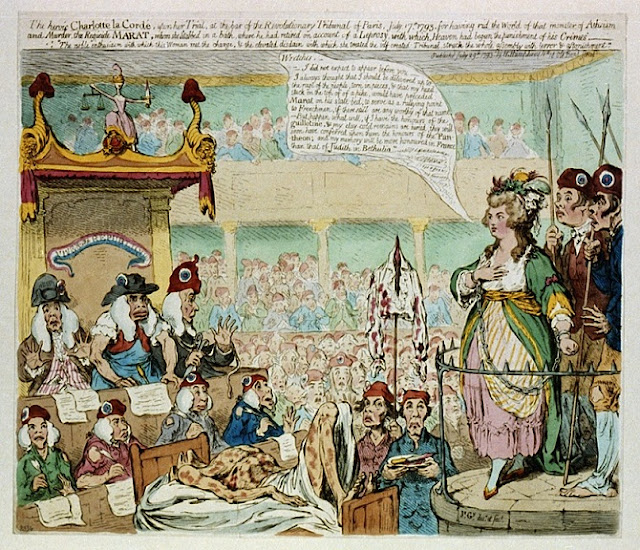 The heroic Charlotte la Cordé, upon her Trial, at the bar of the Revolutionary Tribunal of Paris, July 17th 1793, for having rid the World of that monster of Atheism
and Murder, the Regicide MARAT, whom she stabbed in a bath, where he had retired on account of a Leprosy, with which, Heaven had begun the punishment of his Crimes.
"The noble enthusiasm with which this Woman met the charge, & the elevated disdain with which she treated the self created Tribunal, struck the whole assembly with terror & astonishment."
Publish'd July 29th 1793
Wretches,
I did not expect to appear before you
I always thought that I should be delivered up to
the rage of the people, torn in pieces, & that my head,
stuck on the top of a pike, would have preceded
Marat on his state bed, to serve as a rallying point
to Frenchmen, if there still are any worthy of that name.
But, happen what will, if I have the honours of the
guillotine, & my clay cold remains are buried, they will
soon have conferred upon them the honours of the Pan-
theon; and my memory will be more honoured in France
than that of Judith in Bethulia.
VIVE LA REPUBLIQUE
Js Gy